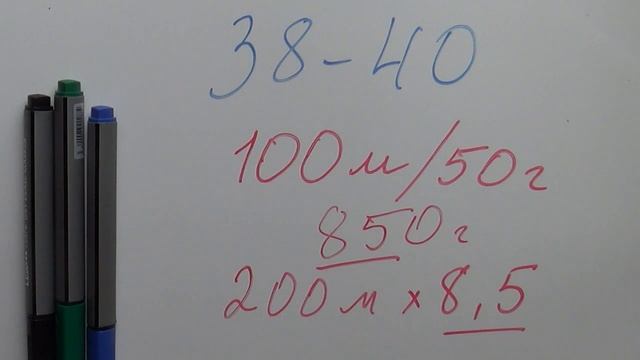 38-40
100м/50г
850г
200м x 8,5